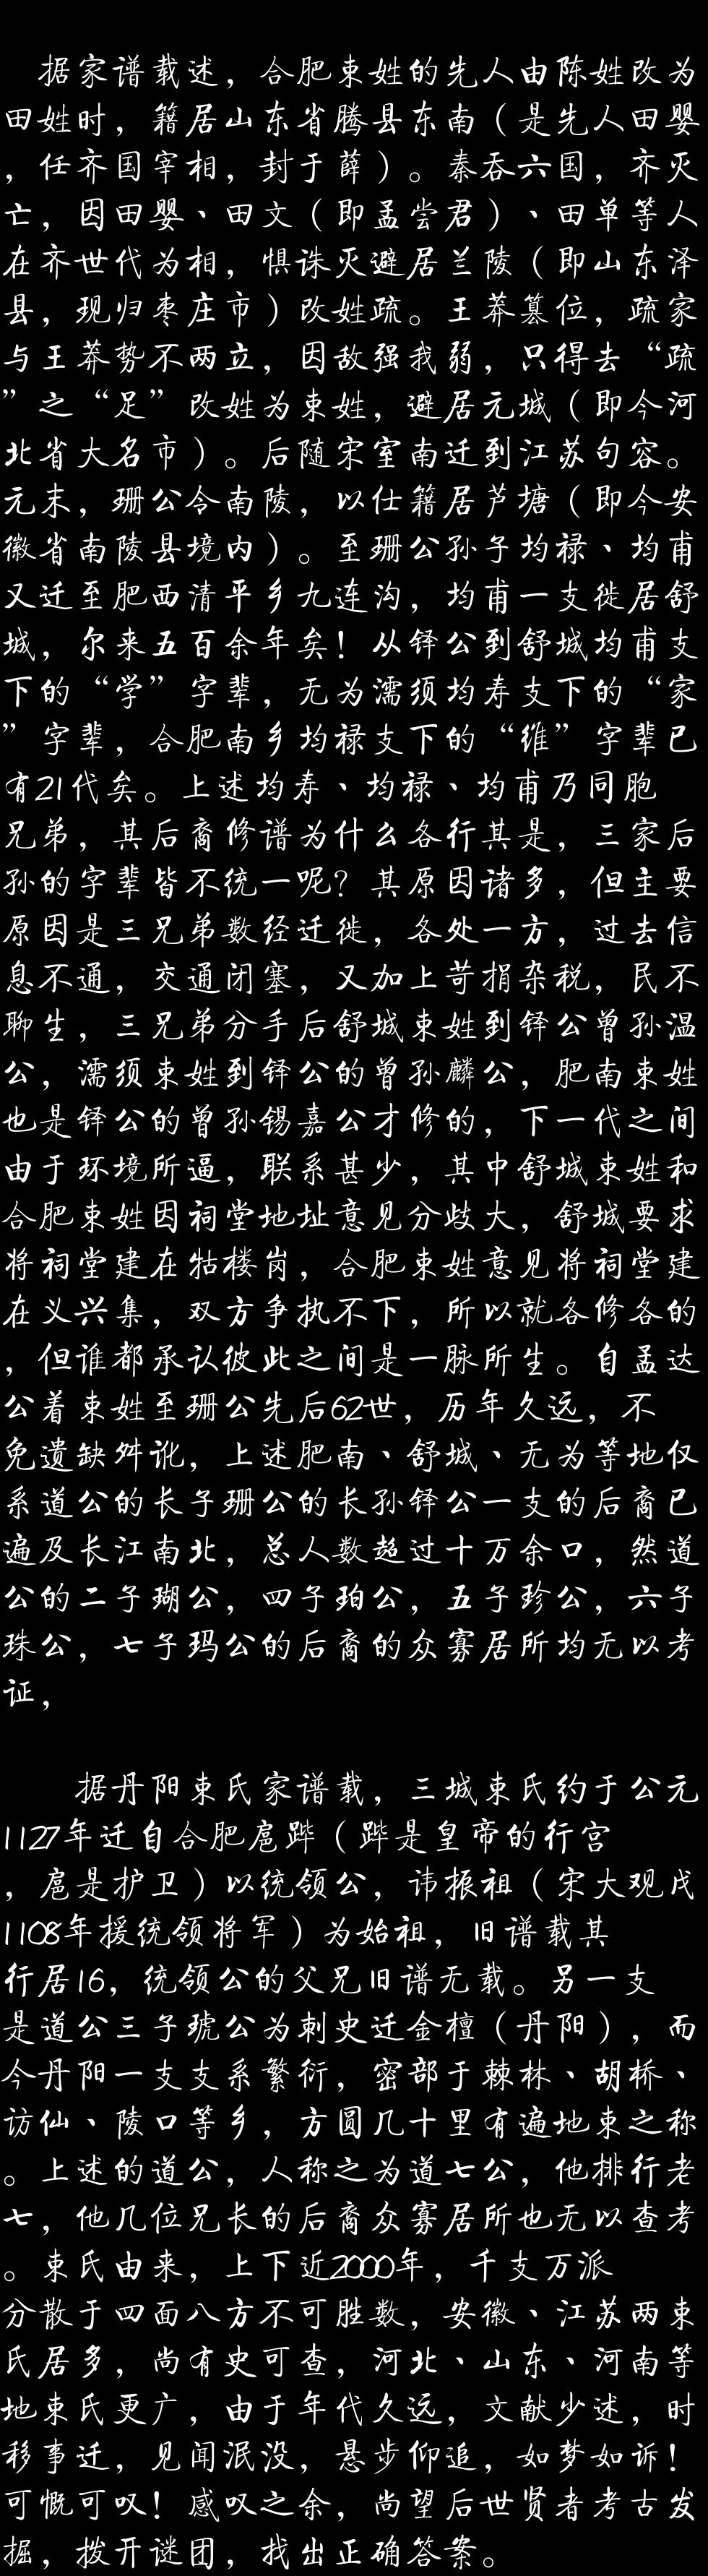 据家谱载述，合肥束姓的先人由陈姓改为
田姓时，籍居山东省腾县东南（是先人田婴
，任齐国宰相，封于薛）。秦吞六国，齐灭
亡，因田婴、田文（即孟尝君）、田单等人
在齐世代为相，惧诛灭避居兰陵（即山东泽
县，现归枣庄市）改姓疏。王莽篡位，疏家
与王莽势不两立，因敌强我弱，只得去“疏
”之“足”改姓为束姓，避居元城（即今河
北省大名市）。后随宋室南迁到江苏句容。
元末，珊公令南陵，以仕籍居芦塘（即今安
徽省南陵县境内）。至珊公孙子均禄、均甫
又迁至肥西清平乡九连沟，均甫一支徙居舒
城，尔来五百余年矣！从铎公到舒城均甫支
下的“学”字辈，无为濡须均寿支下的“家
”字辈，合肥南乡均禄支下的“维”字辈已
有21代矣。上述均寿、均禄、均甫乃同胞
兄弟，其后裔修谱为什么各行其是，三家后
孙的字辈皆不统一呢？其原因诸多，但主要
原因是三兄弟数经迁徙，各处一方，过去信
息不通，交通闭塞，又加上苛捐杂税，民不
聊生，三兄弟分手后舒城束姓到铎公曾孙温
公，濡须束姓到铎公的曾孙麟公，肥南束姓
也是铎公的曾孙锡嘉公才修的，下一代之间
由于环境所逼，联系甚少，其中舒城束姓和
合肥束姓因祠堂地址意见分歧大，舒城要求
将祠堂建在牯楼岗，合肥束姓意见将祠堂建
在义兴集，双方争执不下，所以就各修各的
，但谁都承认彼此之间是一脉所生。自孟达
公着束姓至珊公先后62世，历年久远，不
免遗缺舛讹，上述肥南、舒城、无为等地仅
系道公的长子珊公的长孙铎公一支的后裔已
遍及长江南北，总人数超过十万余口，然道
公的二子瑚公，四子珀公，五子珍公，六子
珠公，七子玛公的后裔的众寡居所均无以考
证，
据丹阳束氏家谱载，三城束氏约于公元
1127年迁自合肥扈跸（跸是皇帝的行宫
，扈是护卫）以统领公，讳振祖（宋大观戊
1108年援统领将军）为始祖，旧谱载其
行居16，统领公的父兄旧谱无载。另一支
是道公三子琥公为刺史迁金檀（丹阳），而
今丹阳一支支系繁衍，密部于棘林、胡桥、
访仙、陵口等乡，方圆几十里有遍地束之称
。上述的道公，人称之为道七公，他排行老
七，他几位兄长的后裔众寡居所也无以查考
。束氏由来，上下近2000年，千支万派
分散于四面八方不可胜数，安徽、江苏两束
氏居多，尚有史可查，河北、山东、河南等
地束氏更广，由于年代久远，文献少述，时
移事迁，见闻泯没，悬步仰追，如梦如诉！
可慨可叹！感叹之余，尚望后世贤者考古发
掘，拨开谜团，找出正确答案。